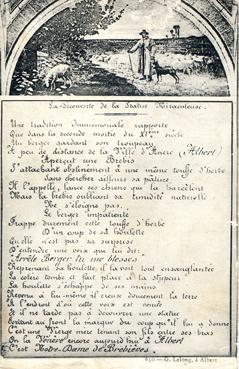 La découverte de la Statue Miraculeuse.
Une tradition immémoriale rapporte
Que dans la seconde moitié du XIème siècle
Un berger gardant son troupeau
A peu de distance de la Ville d'Ancre (Albert)
Aperçut une Brebis
S'attachant obstinément à une même touffe d'herbe
Sans chercher ailleurs sa pâture
Il l'appelle, lance ses chiens qui la harcèlent
Mais la brebis oubliant sa timidité naturelle
Ne s'éloigne pas.
Le berger impatienté
Frappe durement cette touffe d'herbe
D'un coup de sa houlette
Quelle n'est pas sa surprise
D'entendre une voix qui lui dit
"Arrête Berger tu me blesses"
Reprenant sa houlette, il la voit tout ensanglantée
Sa colère tombe et fait place à la stupeur
La houlette s'échappe de ses mains
Revenu à lui-même il creuse doucement la terre
A l'endroit d'où cette voix est venue
Et il ne tarde pas à découvrir une statue
Portant au front la marque du coup qu'il lui a donné
C'est une Vierge mère tenant son fils entre ses bras
On la Vénère encore aujourd'hui à Albert
C'est Notre-Dame de Brebières.
G. Lelong, à Albert